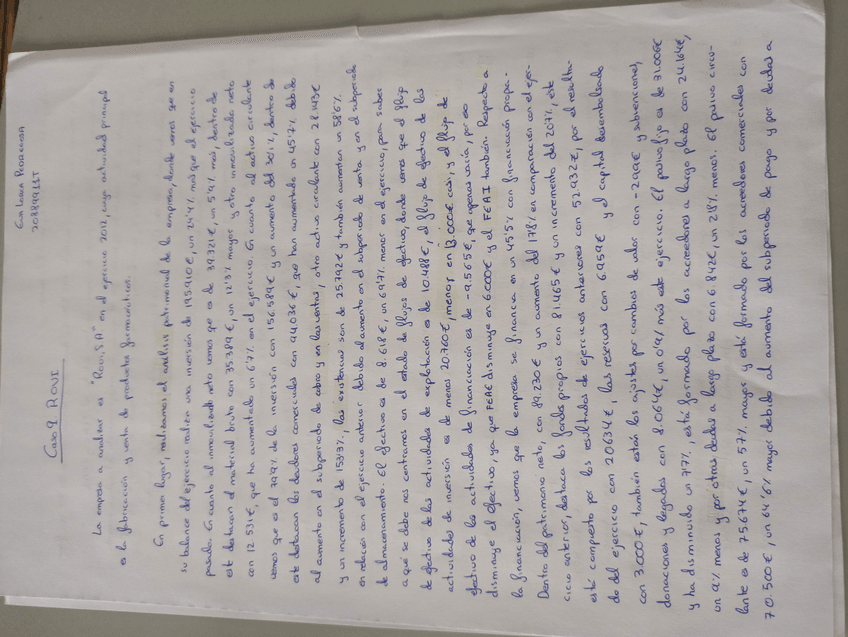 Caso 1 ROVI
La empresa a analizar es "Rovi, S.A" en el ejercicio 2012, cuya actividad principal
es la fabricación y venta de productos farmacéuticos.
En primer lugar, realizamos el análisis patrimonial de la empresa, donde vemos que en
su balance del ejercicio realizan una inversión de 195.910€, un 24'4% más que el ejercicio
pasado. En cuanto al inmovilizado neto vemos que es de 39.321€, un 5'4% más, dentro de
este destacan el material bruto con 35.389€, un 12'3% mayor y otro inmovilizado neto
con 12.531€, que ha aumentado un 6'7% en el ejercicio. En cuanto al activo circulante
vemos que es el 79'9% de la inversión con 156.589€ y un aumento del 30'1%, dentro de
este destacan los deudores comerciales con 44.036€, que han aumentado un 45'7% debido
al aumento en el subperiodo de cobro y en las ventas, otro activo circulante con 28.143€
y un incremento de 1593%, las existencias son de 25.792€ y también aumentan un 58'6%
en relación con el ejercicio anterior debido al aumento en el subperiodo de venta y en el subperiodo
de almacenamiento. El efectivo es de 8.618€, un 69'7% menor en el ejercicio, para saber
a qué se debe nos centramos en el estado de flujos de efectivo, donde vemos que el flujo
de efectivo de las actividades de explotación es de 10.488€, el flujo de efectivo de las
actividades de inversión es de menos 20.760€, menor en 13.000€ casi, y el flujo de
efectivo de las actividades de financiación es de -9.565€, que apenas varía, por eso
disminuye el efectivo, ya que FEAE disminuye en 6.000€ y el FEAI también. Respecto a
la financiación, vemos que la empresa se financia en un 45'5% con financiación propia.
Dentro del patrimonio neto, con 89.230€ y un aumento del 17'8% en comparación con el ejer-
cicio anterior, destaca los fondos propios con 81.465€ y un incremento del 20'7%, este
está compuesto por los resultados de ejercicios anteriores con 52.932€, por el resulta-
do del ejercicio con 20.634€, las reservas con 6.959€ y el capital desembolsado
con 3.000€, también están los ajustes por cambios de valor con -299€ y subvenciones,
donaciones y legados con 8.064€, un 0'9% más este ejercicio. El pasivo fijo es de 31.006€
y ha disminuido un 7'7%, está formado por los acreedores a largo plazo con 24.164€,
un 9% menos y por otras deudas a largo plazo con 6.842€, un 2'8% menos. El pasivo circu-
lante es de 75.674€, un 57% mayor y está formado por los acreedores comerciales con
70.500€, un 64'6% mayor debido al aumento del subperiodo de pago y por deudas a